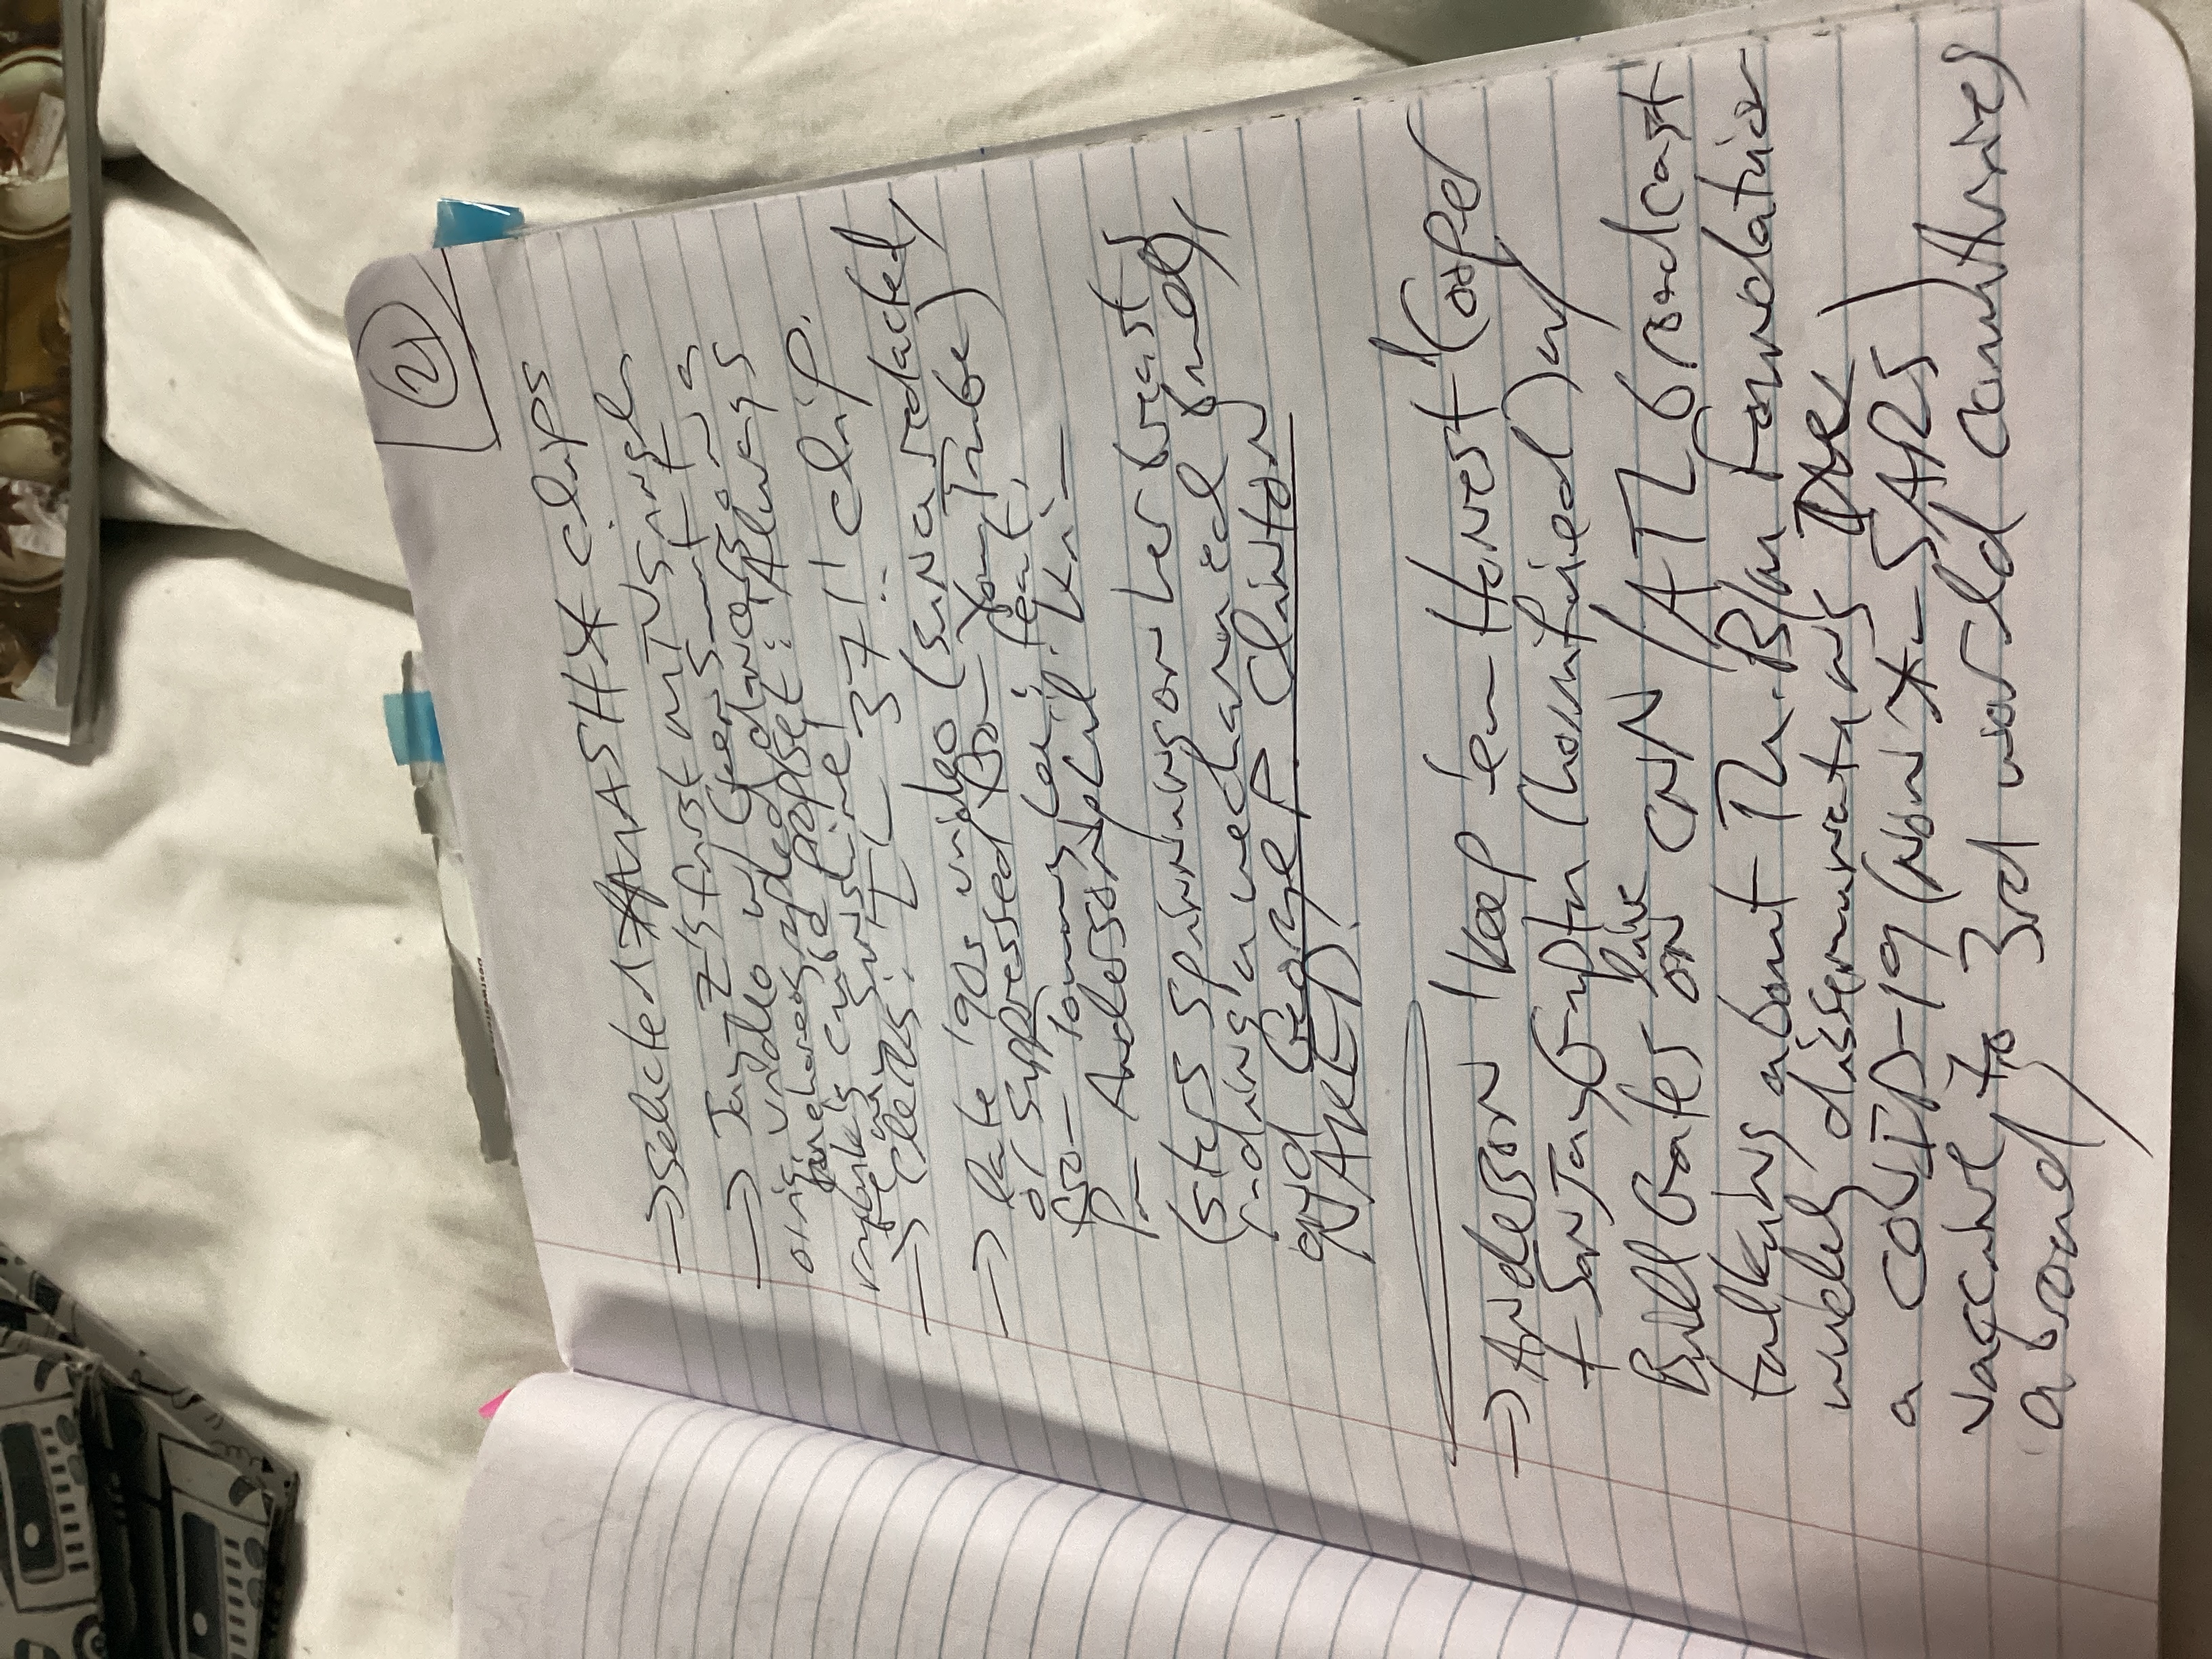 21
→ Selected *MASH* clips
→ Jay-Z's first MTV single
orig. video w/ Gwen
choreographed dancers on a
cube propset: 'Always
be my sunshine!'
→ Clerks: 'IL 37!!' clip.
→ late '90s video (since redacted,
or suppressed from YouTube)
from Tommy Lee: feat.
Pm Anderson, Lil' Kim
(stars spinning on her breasts
riding a mechanical bull),
and George P. Clinton
NAKED!
→ Anderson 'Keep 'em Honest' Cooper
+ SanJay Gupta (horrified) w/
Bill Gates live on CNN/ATL broadcast
talking about Th. B/M Foundation
widely disseminating the
a COVID-19 (Now X-SARS)
vaccine to 3rd world countries
abroad,